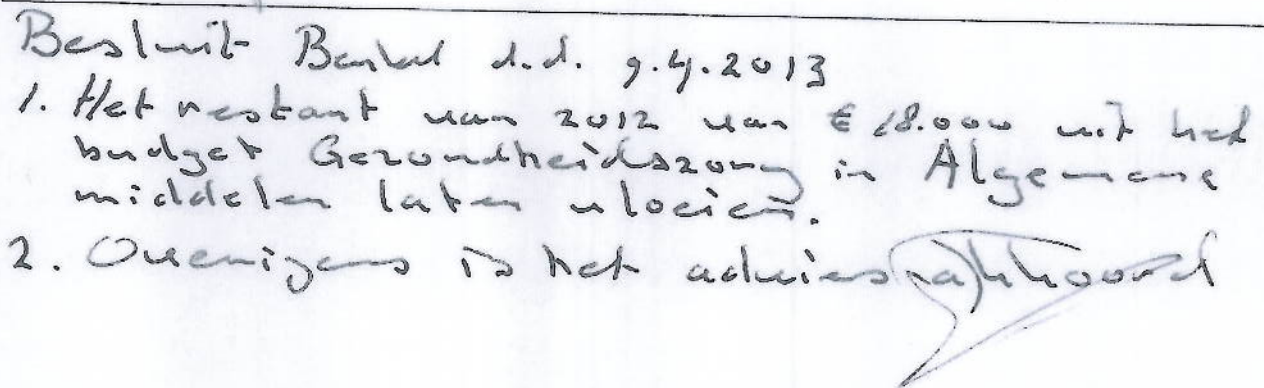 Besluit d.d. 9.4.2013
1. Het restant van 2012 van € 18.000 uit het
budget Gezondheidszorg in Algemene
middelen laten vloeien.
2. Overigens is het advies akkoord